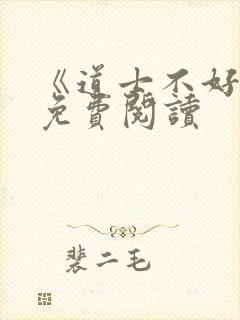 《道士不好
免費閱讀
裴二毛